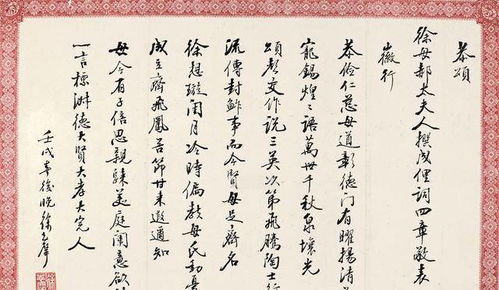 恭頌
徐母郝太夫人撰成俚詞四章敬表
徽行
恭儉仁慈母道彰德門有曜揚清
寵錫煌煌語萬世千秋泉壤光
頌聲交作說三英次第飛騰陶士行
流傳封鮓事而今賢母是齊名
徐 閨月冷時偏教母氏動
成立齊飛鳳苦節甘来邀通知
母今有子倍思親歸美庭闈意欲
一言標淑德大賢大孝大完人
壬戌年後晚徐